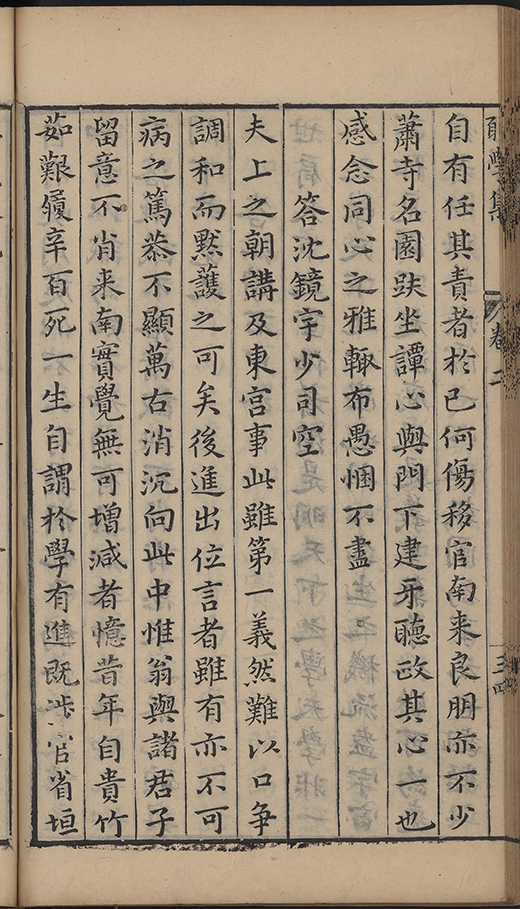 願學集 卷二 三四
自有任其責者於已何傷移官南来良朋亦不少
蕭寺名園趺坐譚心與門下建牙聽政其心一也
感念同心之雅輙布愚悃不盡
答沈鏡宇少司空
夫上之朝講及東宮事此雖第一義然難以口争
調和而默護之可矣後進出位言者雖有亦不可
病之篤恭不顯萬古消沉向此中惟翁與諸君子
留意不肖来南實覺無可增減者憶昔年自貴竹
茹艱履辛百死一生自謂於學有進既涉宦省垣